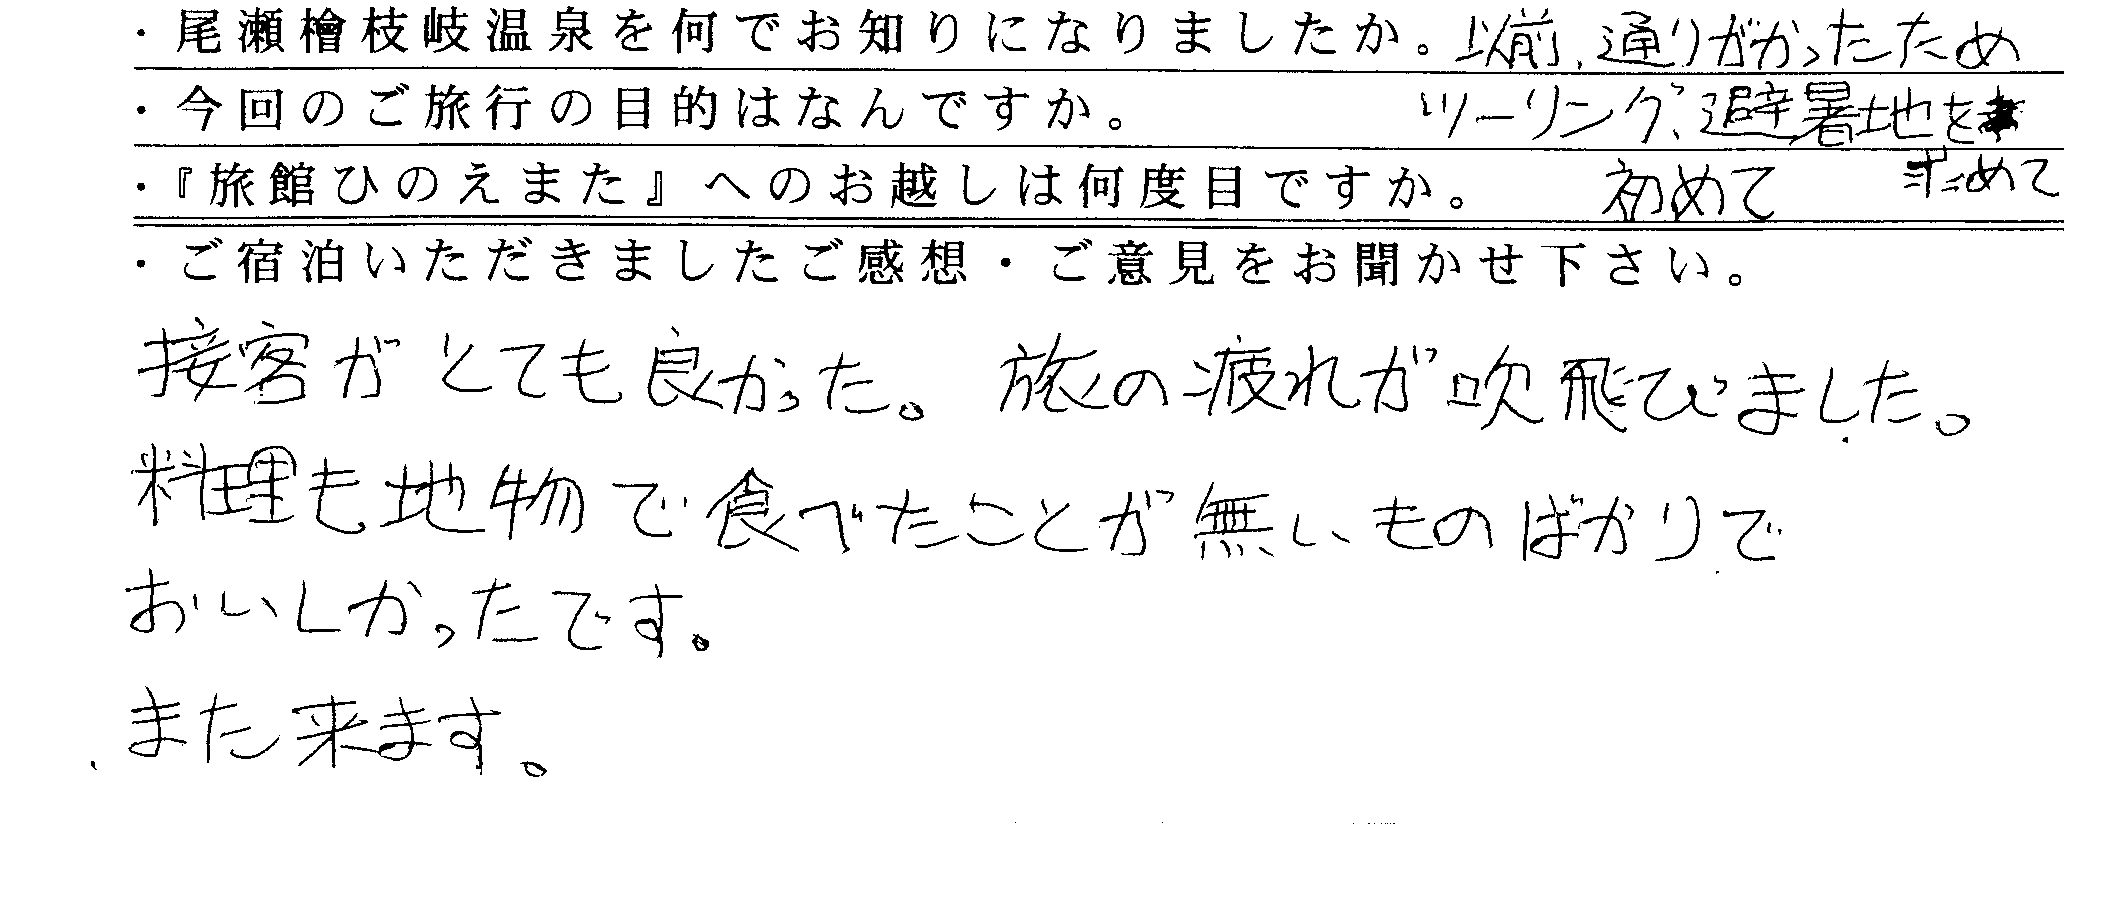 ・尾瀬檜枝岐温泉を何でお知りになりましたか。以前、通りがかったため
・今回のご旅行の目的はなんですか。 ツーリング、避暑地を
求めて
・『旅館ひのえまた』へのお越しは何度目ですか。 初めて
・ご宿泊いただきましたご感想・ご意見をお聞かせ下さい。
接客がとても良かった。旅の疲れが吹飛びました。
料理も地物で食べたことが無いものばかりで
おいしかったです。
また来ます。